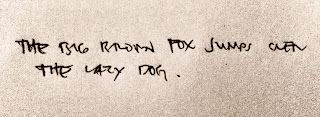 THE BIG BROWN FOX JUMPS OVER
THE LAZY DOG.